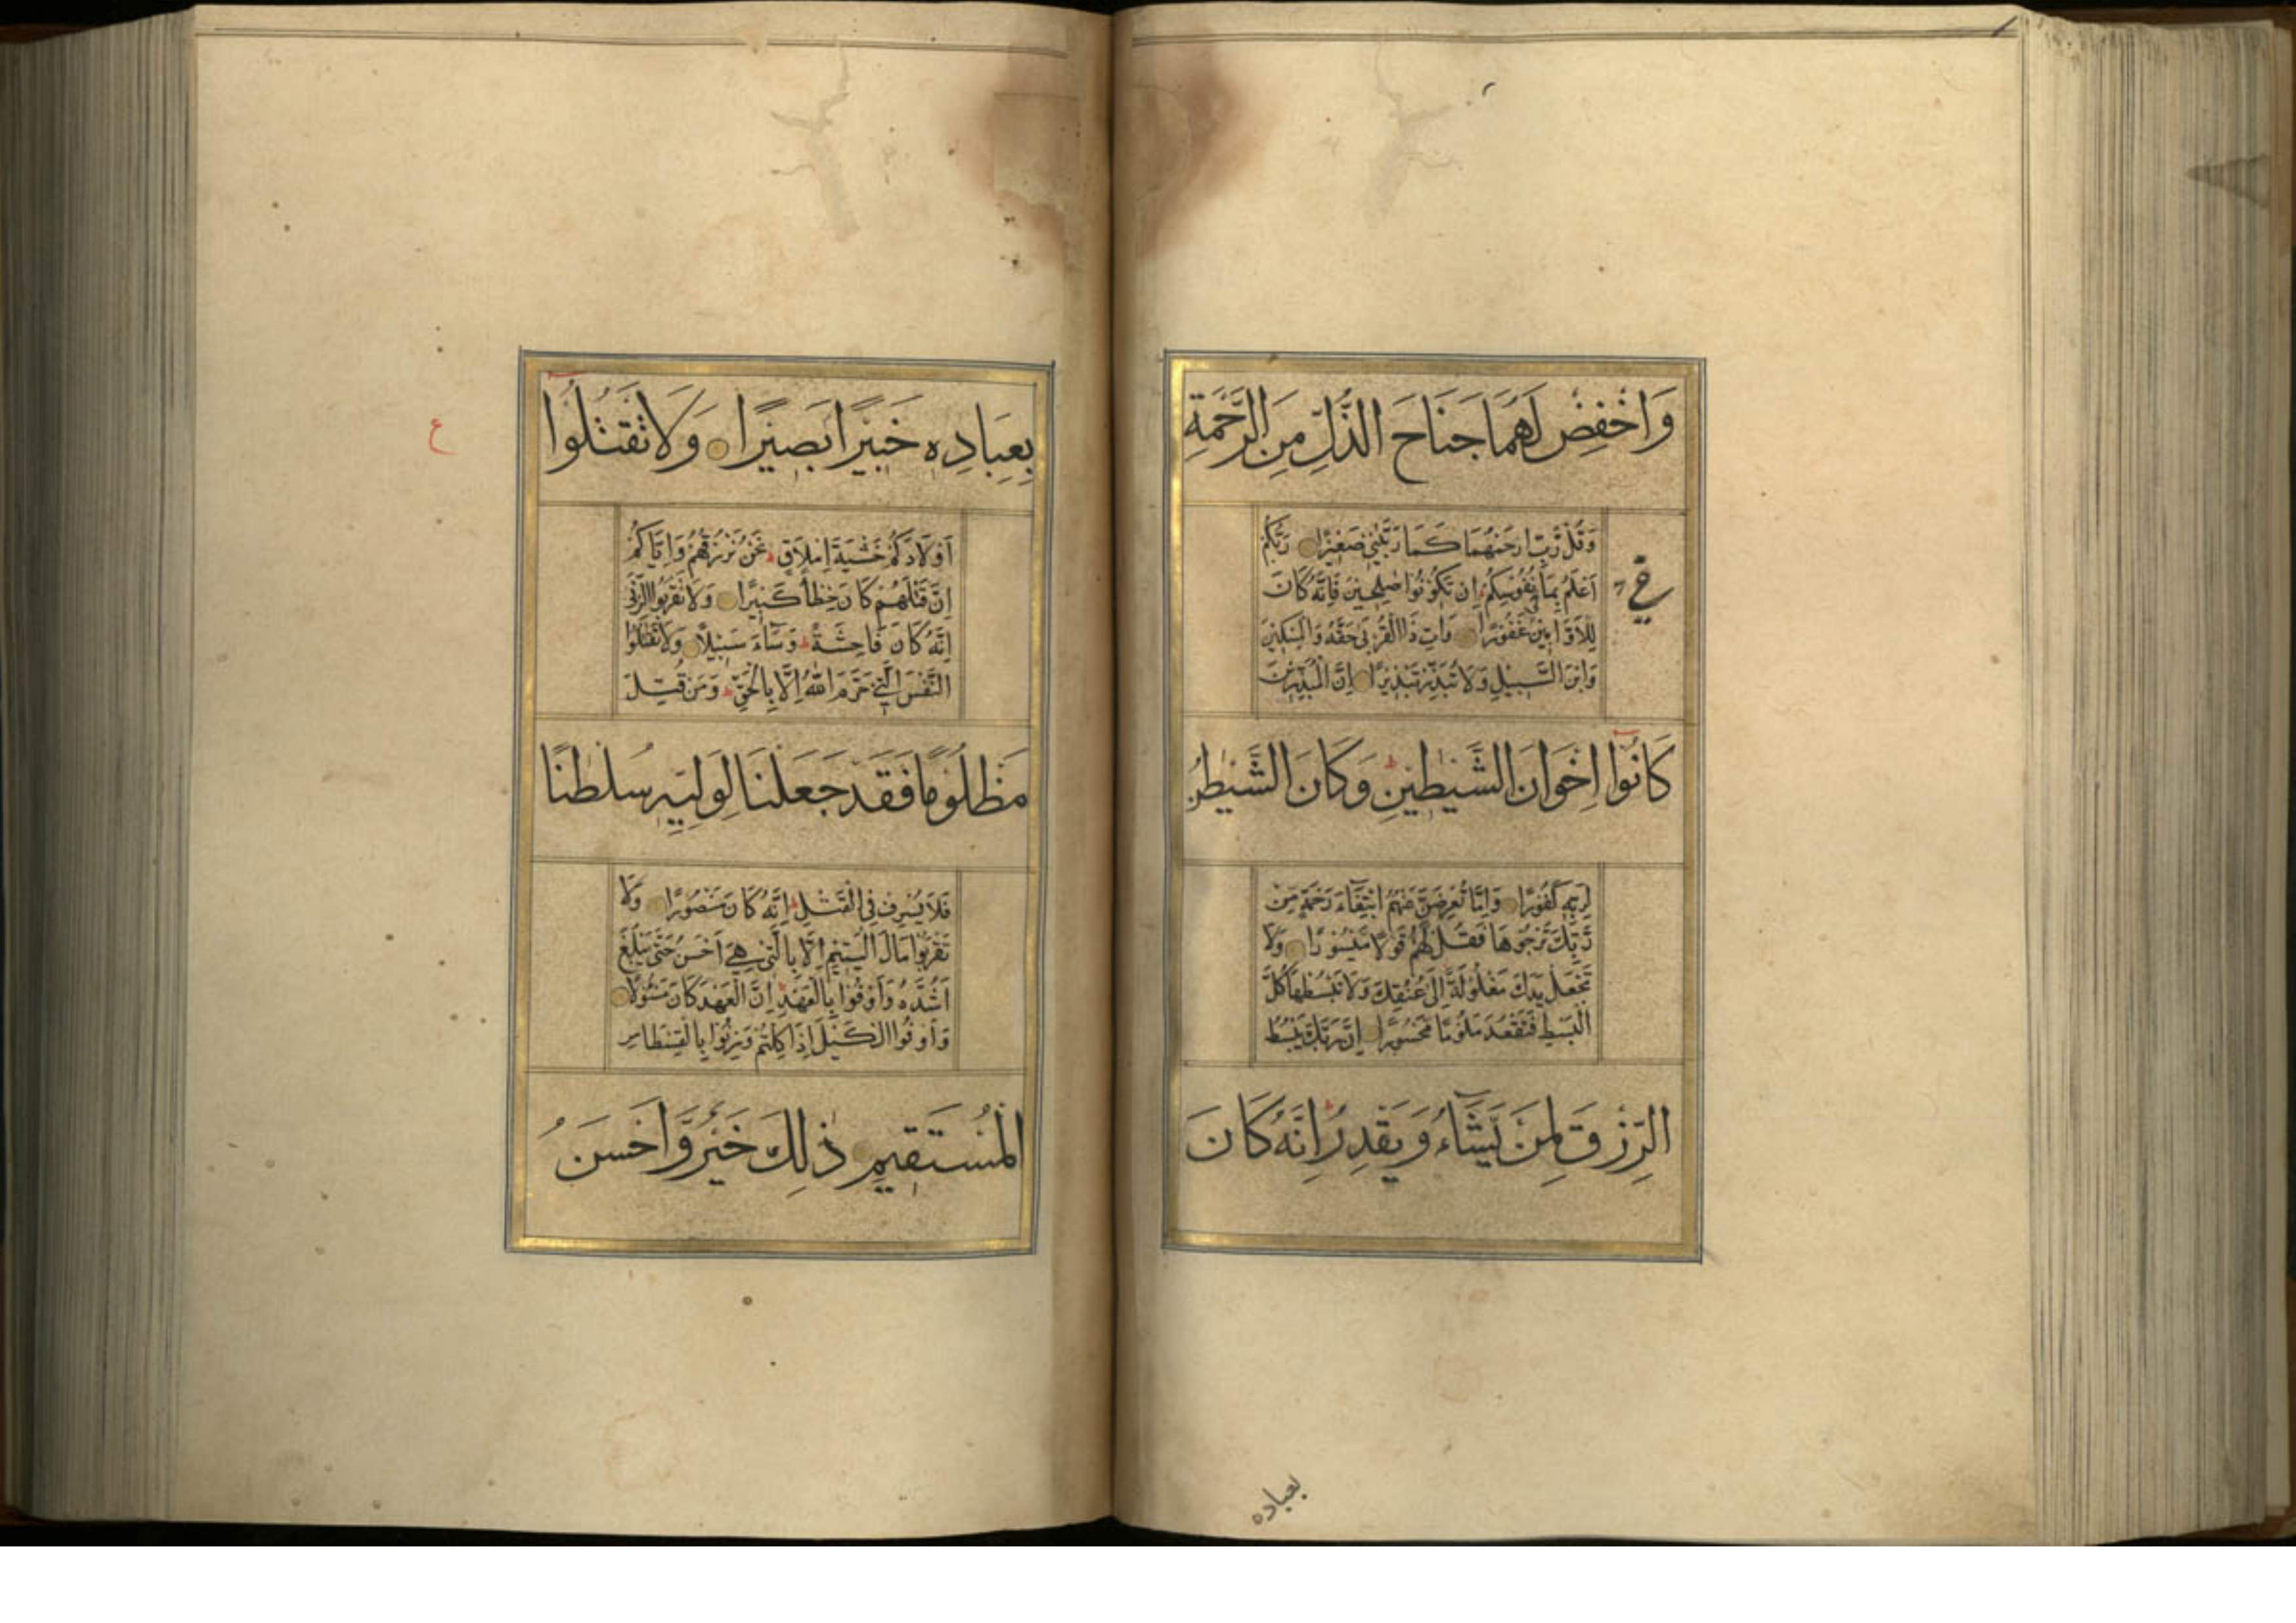 وَاخْفِضْ لَهُمَا جَنَاحَ الذُّلِّ مِنَ الرَّحْمَةِ
وَقُلْ رَبِّ ارْحَمْهُمَا كَمَا رَبَّيٰنِيْ صَغِيْرًا رَبُّكُمْ
اَعْلَمُ بِمَا فِيْ نُفُوْسِكُمْ ط اِنْ تَكُوْنُوْا صٰلِحِيْنَ فَاِنَّهُ كَانَ
لِلْاَوَّابِيْنَ غَفُوْرًا وَاٰتِ ذَا الْقُرْبٰى حَقَّهُ وَالْمِسْكِيْنَ
وَابْنَ السَّبِيْلِ وَلَا تُبَذِّرْ تَبْذِيْرًا اِنَّ الْمُبَذِّرِيْنَ
كَانُوْا اِخْوَانَ الشَّيٰطِيْنِ ط وَكَانَ الشَّيْطٰنُ
لِرَبِّهٖ كَفُوْرًا وَاِمَّا تُعْرِضَنَّ عَنْهُمُ ابْتِغَاءَ رَحْمَةٍ مِنْ
رَّبِّكَ تَرْجُوْهَا فَقُلْ لَّهُمْ قَوْلًا مَّيْسُوْرًا وَلَا
تَجْعَلْ يَدَكَ مَغْلُوْلَةً اِلٰى عُنُقِكَ وَلَا تَبْسُطْهَا كُلَّ
الْبَسْطِ فَتَقْعُدَ مَلُوْمًا مَّحْسُوْرًا اِنَّ رَبَّكَ يَبْسُطُ
الرِّزْقَ لِمَنْ يَّشَاءُ وَيَقْدِرُ ط اِنَّهُ كَانَ
بعباده
بِعِبَادِهٖ خَبِيْرًا بَصِيْرًا وَلَا تَقْتُلُوْا
ع
اَوْلَادَكُمْ خَشْيَةَ اِمْلَاقٍ ط نَحْنُ نَرْزُقُهُمْ وَاِيَّاكُمْ
اِنَّ قَتْلَهُمْ كَانَ خِطْأً كَبِيْرًا وَلَا تَقْرَبُوا الزِّنٰى
اِنَّهُ كَانَ فَاحِشَةً ط وَسَاءَ سَبِيْلًا وَلَا تَقْتُلُوا
النَّفْسَ الَّتِيْ حَرَّمَ اللّٰهُ اِلَّا بِالْحَقِّ ط وَمَنْ قُتِلَ
مَظْلُوْمًا فَقَدْ جَعَلْنَا لِوَلِيِّهٖ سُلْطٰنًا
فَلَا يُسْرِفْ فِي الْقَتْلِ ط اِنَّهُ كَانَ مَنْصُوْرًا وَلَا
تَقْرَبُوْا مَالَ الْيَتِيْمِ اِلَّا بِالَّتِيْ هِيَ اَحْسَنُ حَتّٰى يَبْلُغَ
اَشُدَّهُ وَاَوْفُوْا بِالْعَهْدِ ط اِنَّ الْعَهْدَ كَانَ مَسْئُوْلًا
وَاَوْفُوا الْكَيْلَ اِذَا كِلْتُمْ وَزِنُوْا بِالْقِسْطَاسِ
الْمُسْتَقِيْمِ ذٰلِكَ خَيْرٌ وَّاَحْسَنُ